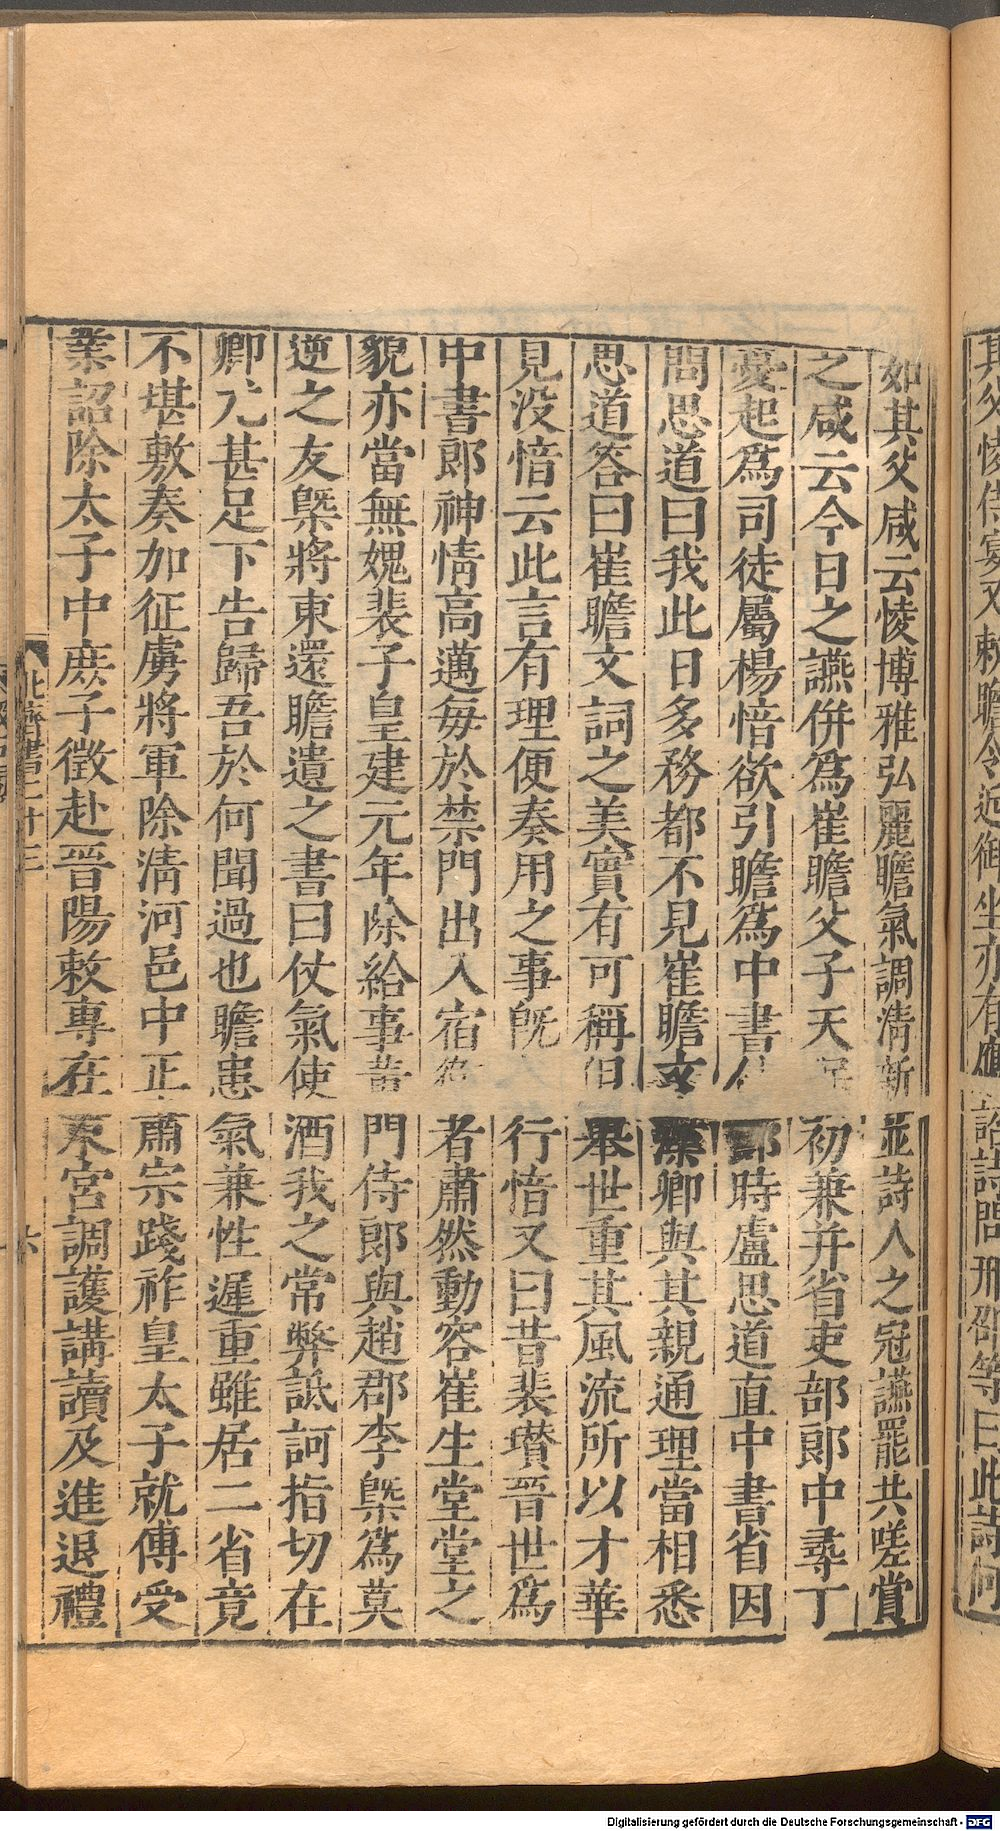 其父㥄侍宴又敕瞻令近御坐亦有應詔詩問邢邵等曰此詩何
如其父咸云㥄博雅弘麗瞻氣調清新並詩人之冠讌罷共嗟賞
之咸云今日之讌併爲崔瞻父子天保初兼并省吏部郎中尋丁
憂起爲司徒屬楊愔欲引瞻爲中書侍郎時盧思道直中書省因
問思道曰我此日多務都不見崔瞻文藻卿與其親通理當相悉
思道答曰崔瞻文詞之美實有可稱但舉世重其風流所以才華
見没愔云此言有理便奏用之事旣行愔又曰昔裴瓚晉世爲
中書郎神情高邁每於禁門出入宿衛者肅然動容崔生堂堂之
貌亦當無媿裴子皇建元年除給事黃門侍郎與趙郡李槩爲莫
逆之友槩將東還瞻遺之書曰仗氣使酒我之常弊詆訶指切在
卿尤甚足下告歸吾於何聞過也瞻患氣兼性遲重雖居二省竟
不堪敷奏加征虜將軍除清河邑中正肅宗踐祚皇太子就傅受
業詔除太子中庶子徵赴晉陽敕專在東宮調護講讀及進退禮
北齊書二十三
六
Digitalisierung gefördert durch die Deutsche Forschungsgemeinschaft - DFG